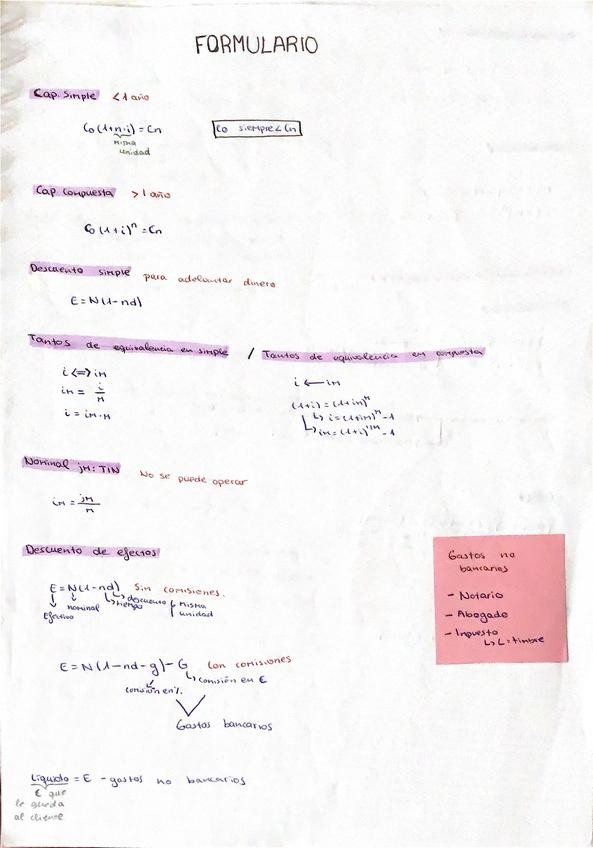 FORMULARIO
Cap. Simple < 1 año
Co (1+n·i) = Cn
misma
unidad
Co siempre < Cn
Cap. compuesta > 1 año
Co (1+i)^n = Cn
Descuento simple para adelantar dinero
E = N(1-nd)
Tantos de equivalencia en simple / Tantos de equivalencia en compuesta
i <=> im
im = i/m
i = im·m
i ← im
(1+i) = (1+im)^m
↳ i = (1+im)^m - 1
↳ im = (1+i)^1/m - 1
Nominal jm: TIN No se puede operar
im = jm/m
Descuento de efectos
E = N(1-nd) Sin comisiones.
Efectivo
nominal
↳ tiempo
↳ descuento
misma
unidad
E = N(1-nd-g) - G Con comisiones
comisión en %
↳ comisión en €
Gastos bancarios
Líquido = E - gastos no bancarios
€ que
le queda
al cliente
Gastos no
bancarios
- Notario
- Abogado
- Impuesto
↳ L = timbre